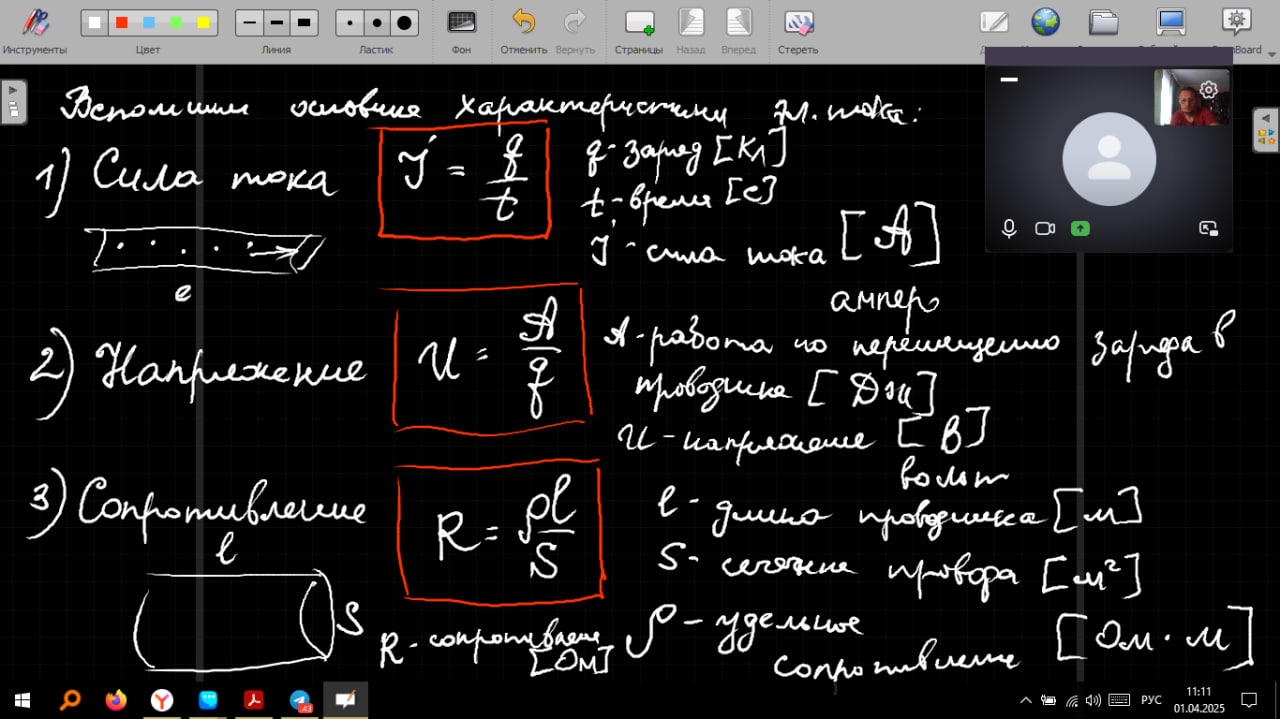 Инструменты
Цвет
Линия
Ластик
Фон
Отменить
Вернуть
Страницы
Назад
Вперед
Стереть
Board
Вспомним основные характеристики эл. тока:
1) Сила тока
I = q/t
q - заряд [Кл]
t - время [с]
I - сила тока [А]
ампер
e
2) Напряжение
U = A/q
A - работа по перемещению заряда в
проводнике [Дж]
U - напряжение [В]
вольт
3) Сопротивление
R = ρl/S
l - длина проводника [м]
S - сечение провода [м²]
ρ - удельное
сопротивление [Ом · м]
l
S
R - сопротивление
[Ом]
43
РУС
11:11
01.04.2025